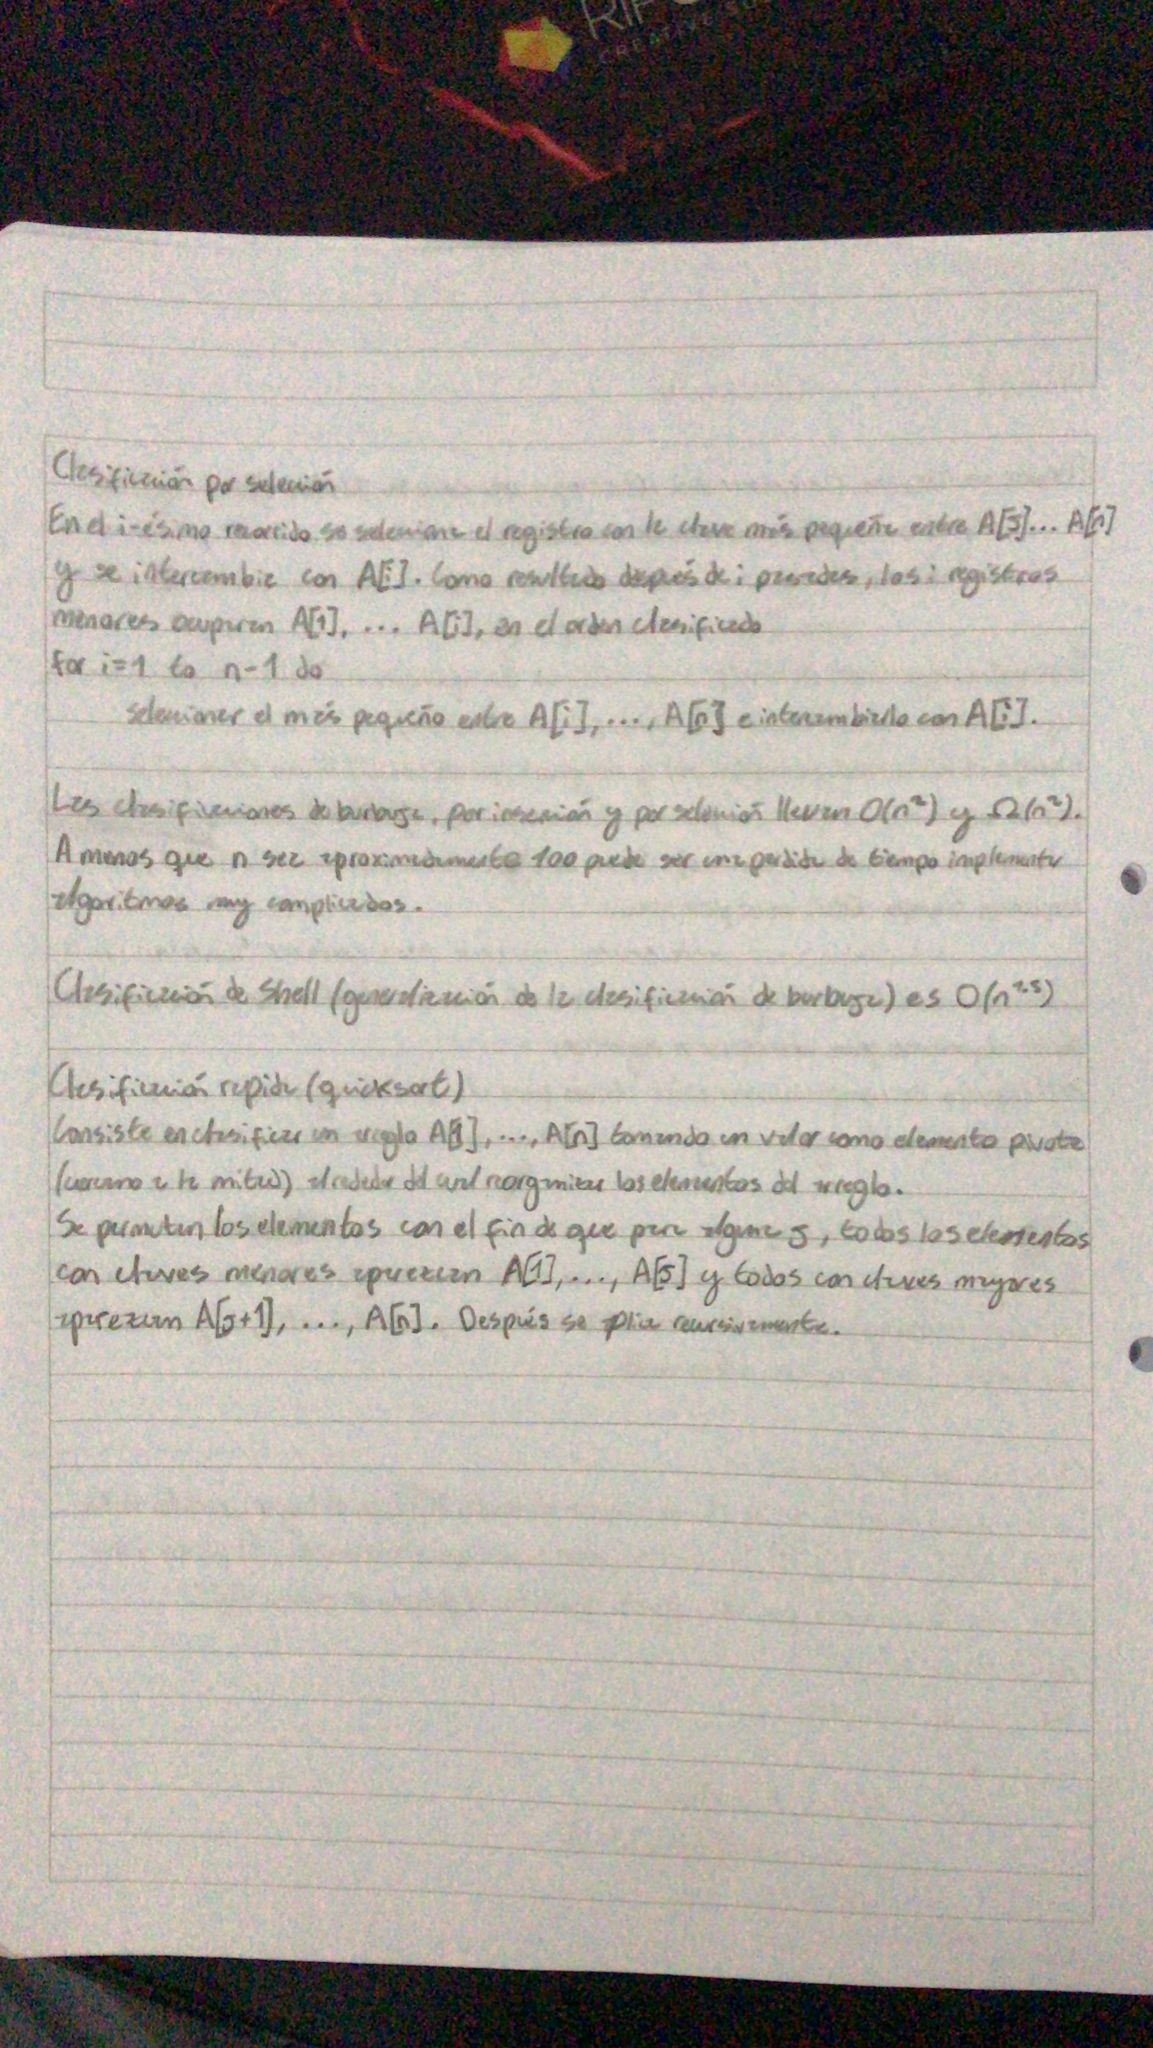 RIP
CREATIVE
Clasificación por selección
En el i-ésimo recorrido se selecciona el registro con la clave más pequeña entre A[j]... A[n]
y se intercambia con A[i]. Como resultado después de i pasadas, los i registros
menores ocuparan A[1], ... A[i], en el orden clasificado
for i=1 to n-1 do
seleccionar el más pequeño entre A[i], ..., A[n] e intercambiarlo con A[i].
Las clasificaciones de burbuja, por inserción y por selección llevan O(n²) y Ω(n²).
A menos que n sea aproximadamente 100 puede ser una perdida de tiempo implementar
algoritmos muy complicados.
Clasificación de Shell (generalización de la clasificación de burbuja) es O(n^1.5)
Clasificación rapida (quicksort)
Consiste en clasificar un arreglo A[1], ..., A[n] tomando un valor como elemento pivote
(cercano a la mitad) alrededor del cual reorganizar los elementos del arreglo.
Se permutan los elementos con el fin de que para alguna j, todos los elementos
con claves menores aparezcan A[1], ..., A[j] y todos con claves mayores
aparezcan A[j+1], ..., A[n]. Después se recursivamente.